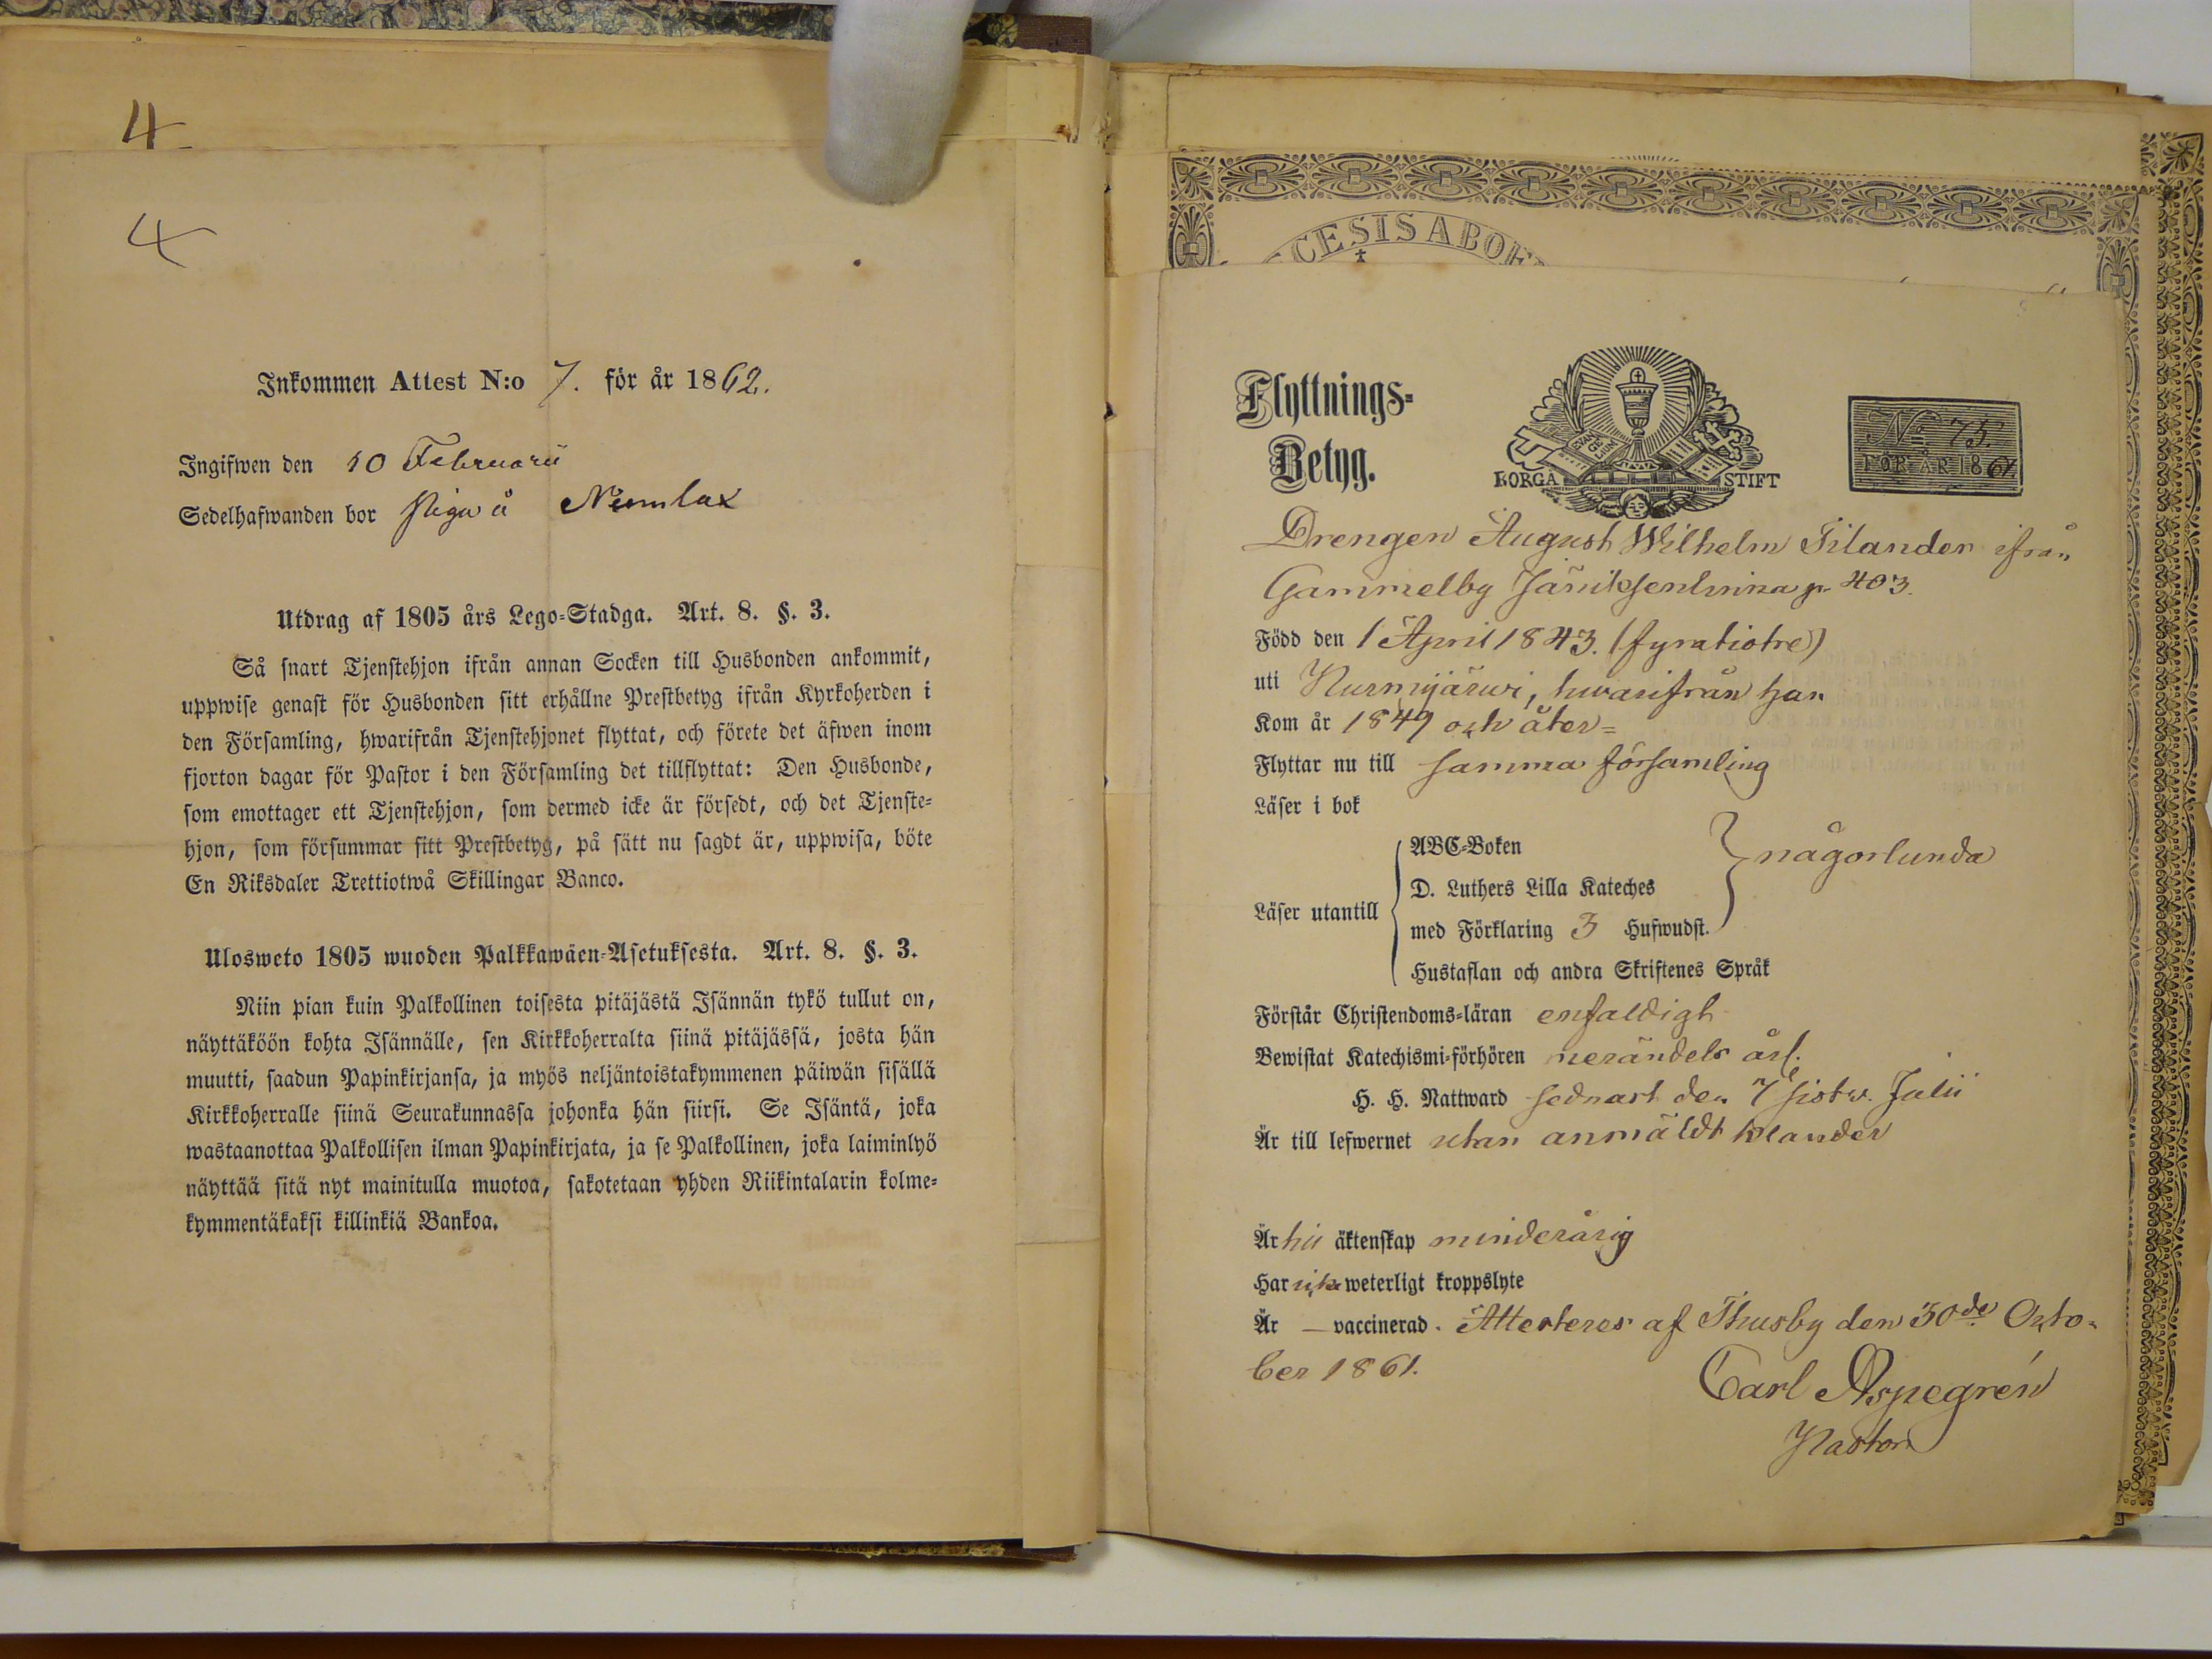 4
4
Inkommen Attest N:o 7. för år 1862.
Ingifwen den 10 Februarii
Sedelhafwanden bor piga å Nemlax
Utdrag af 1805 års Lego-Stadga. Art. 8. §. 3.
Så snart Tjenstehjon ifrån annan Socken till Husbonden ankommit,
uppwise genast för Husbonden sitt erhållne Prestbetyg ifrån Kyrkoherden i
den Församling, hwarifrån Tjenstehjonet flyttat, och förete det äfwen inom
fjorton dagar för Pastor i den Församling det tillflyttat: Den Husbonde,
som emottager ett Tjenstehjon, som dermed icke är försedt, och det Tjenste-
hjon, som försummar sitt Prestbetyg, på sätt nu sagdt är, uppwisa, böte
En Riksdaler Trettiotwå Skillingar Banco.
Ulosweto 1805 wuoden Palkkawäen-Asetuksesta. Art. 8. §. 3.
Niin pian kuin Palkollinen toisesta pitäjästä Isännän tykö tullut on,
näyttäköön kohta Isännälle, sen Kirkkoherralta siinä pitäjässä, josta hän
muutti, saadun Papinkirjansa, ja myös neljäntoistakymmenen päiwän sisällä
Kirkkoherralle siinä Seurakunnassa johonka hän siirsi. Se Isäntä, joka
wastaanottaa Palkollisen ilman Papinkirjata, ja se Palkollinen, joka laiminlyö
näyttää sitä nyt mainitulla muotoa, sakotetaan yhden Riikintalarin kolme-
kymmentäkaksi killinkiä Bankoa.
CESIS ABOE
Flyttnings-
Betyg.
EVAN
GE
LIUM
BORGÅ STIFT
No 75.
FÖR ÅR 1861.
Drengen August Wilhelm Silander ifrån
Gammelby p. 403.
Född den 1 April 1843. (fyratiotre)
uti Nurmijärwi, hwarifrån han
Kom år 1849 och åter=
Flyttar nu till samma församling
Läser i bok
Läser utantill
ABC-Boken
D. Luthers Lilla Kateches
med Förklaring 3 Hufwudst.
Hustaflan och andra Skriftenes Språk
någorlunda
Förstår Christendoms-läran enfaldigt
Bewistat Katechismi-förhören merändels årl.
H. H. Nattward sednast den 7 sistw. Julii
Är till lefwernet utan anmäldt klander
Är till äktenskap minderårig
Har icke weterligt kroppslyte
Är — vaccinerad. Attesteres af Thusby den 30de Octo-
ber 1861.
Carl Aspegrén
Pastor